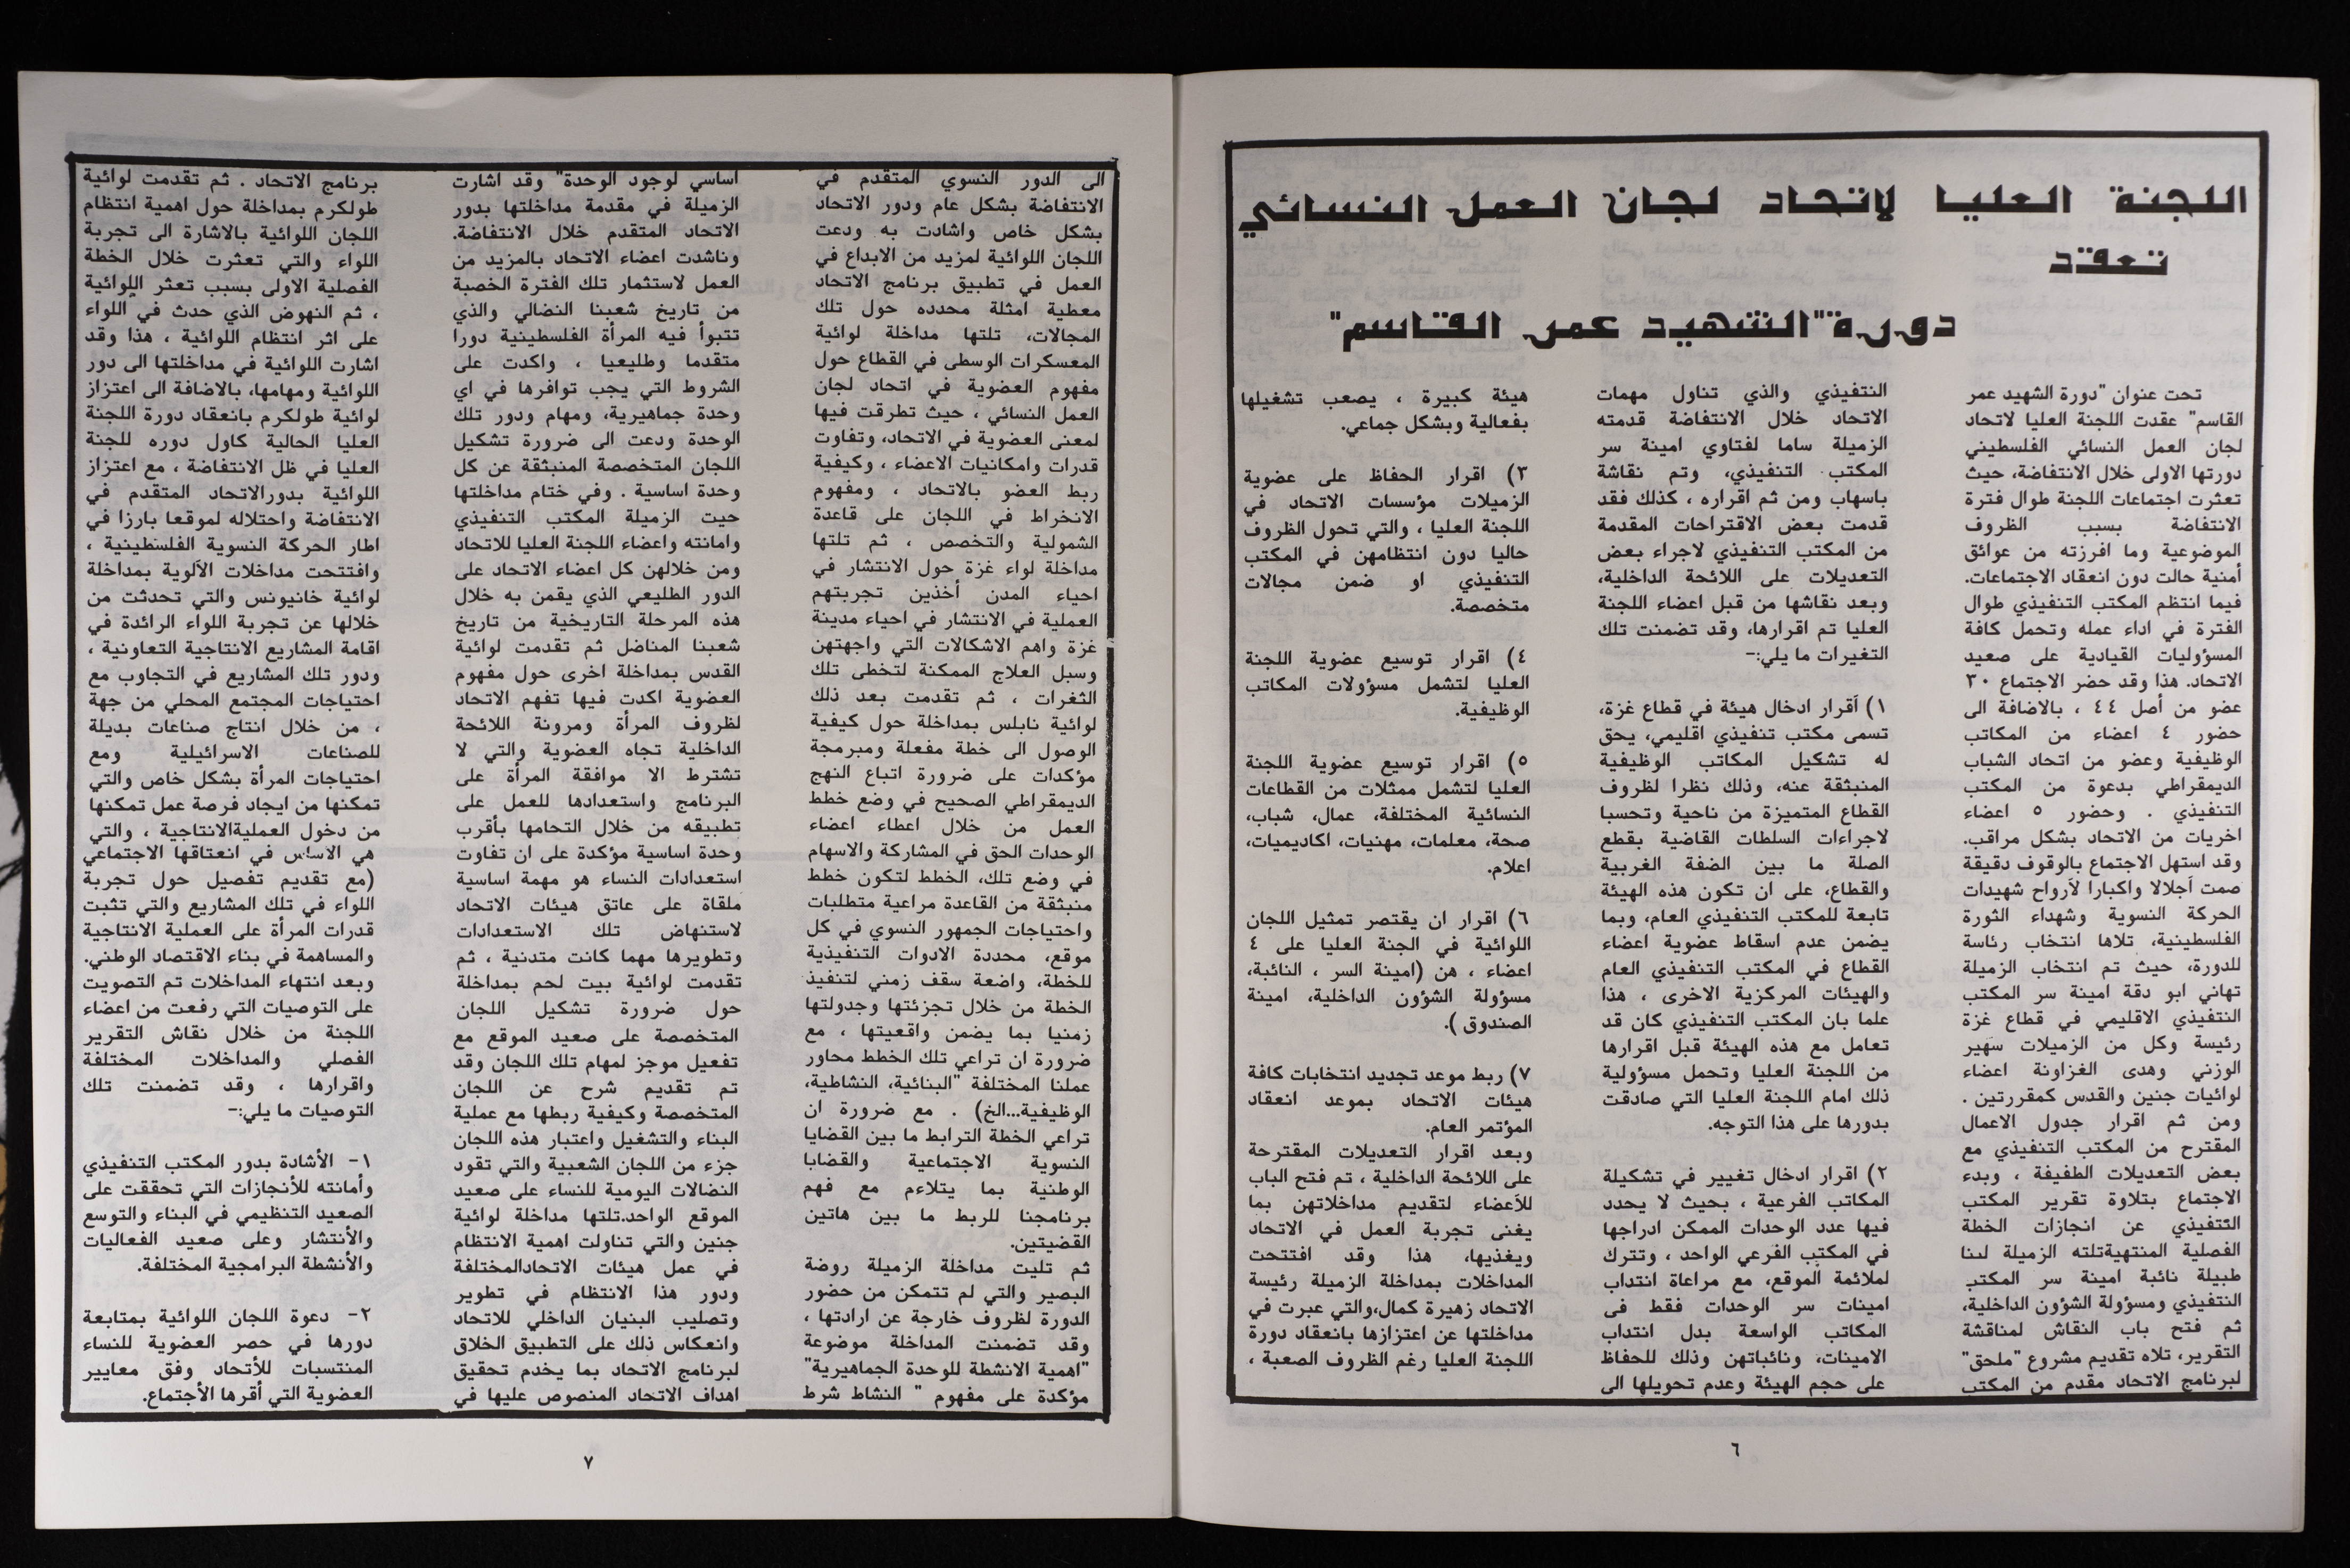 اللجنة العليا لاتحاد لجان العمل النسائي
تعقد
دورة "الشهيد عمر القاسم"
تحت عنوان "دورة الشهيد عمر
القاسم" عقدت اللجنة العليا لاتحاد
لجان العمل النسائي الفلسطيني
دورتها الاولى خلال الانتفاضة، حيث
تعثرت اجتماعات اللجنة طوال فترة
الانتفاضة بسبب الظروف
الموضوعية وما افرزته من عوائق
أمنية حالت دون انعقاد الاجتماعات.
فيما انتظم المكتب التنفيذي طوال
الفترة في اداء عمله وتحمل كافة
المسؤوليات القيادية على صعيد
الاتحاد. هذا وقد حضر الاجتماع ٣٠
عضو من أصل ٤٤ ، بالاضافة الى
حضور ٤ اعضاء من المكاتب
الوظيفية وعضو من اتحاد الشباب
الديمقراطي بدعوة من المكتب
التنفيذي . وحضور ٥ اعضاء
اخريات من الاتحاد بشكل مراقب.
وقد استهل الاجتماع بالوقوف دقيقة
صمت أجلالا واكبارا لأرواح شهيدات
الحركة النسوية وشهداء الثورة
الفلسطينية، تلاها انتخاب رئاسة
للدورة، حيث تم انتخاب الزميلة
تهاني ابو دقة امينة سر المكتب
التنفيذي الاقليمي في قطاع غزة
رئيسة وكل من الزميلات سهير
الوزني وهدى الغزاونة اعضاء
لوائيات جنين والقدس كمقررتين .
ومن ثم اقرار جدول الاعمال
المقترح من المكتب التنفيذي مع
بعض التعديلات الطفيفة ، وبدء
الاجتماع بتلاوة تقرير المكتب
التنفيذي عن انجازات الخطة
الفصلية المنتهيةتلته الزميلة لينا
طبيلة نائبة امينة سر المكتب
التنفيذي ومسؤولة الشؤون الداخلية،
ثم فتح باب النقاش لمناقشة
التقرير، تلاه تقديم مشروع "ملحق"
لبرنامج الاتحاد مقدم من المكتب
التنفيذي والذي تناول مهمات
الاتحاد خلال الانتفاضة قدمته
الزميلة ساما لفتاوي امينة سر
المكتب التنفيذي، وتم نقاشة
باسهاب ومن ثم اقراره ، كذلك فقد
قدمت بعض الاقتراحات المقدمة
من المكتب التنفيذي لاجراء بعض
التعديلات على اللائحة الداخلية،
وبعد نقاشها من قبل اعضاء اللجنة
العليا تم اقرارها، وقد تضمنت تلك
التغيرات ما يلي:-
١) أقرار ادخال هيئة في قطاع غزة،
تسمى مكتب تنفيذي اقليمي، يحق
له تشكيل المكاتب الوظيفية
المنبثقة عنه، وذلك نظرا لظروف
القطاع المتميزة من ناحية وتحسبا
لاجراءات السلطات القاضية بقطع
الصلة ما بين الضفة الغربية
والقطاع، على ان تكون هذه الهيئة
تابعة للمكتب التنفيذي العام، وبما
يضمن عدم اسقاط عضوية اعضاء
القطاع في المكتب التنفيذي العام
والهيئات المركزية الاخرى ، هذا
علما بان المكتب التنفيذي كان قد
تعامل مع هذه الهيئة قبل اقرارها
من اللجنة العليا وتحمل مسؤولية
ذلك امام اللجنة العليا التي صادقت
بدورها على هذا التوجه.
٢) اقرار ادخال تغيير في تشكيلة
المكاتب الفرعية ، بحيث لا يحدد
فيها عدد الوحدات الممكن ادراجها
في المكتب الفرعي الواحد ، وتترك
لملائمة الموقع، مع مراعاة انتداب
امينات سر الوحدات فقط فى
المكاتب الواسعة بدل انتداب
الامينات، ونائباتهن وذلك للحفاظ
على حجم الهيئة وعدم تحويلها الى
هيئة كبيرة ، يصعب تشغيلها
بفعالية وبشكل جماعي.
٣) اقرار الحفاظ على عضوية
الزميلات مؤسسات الاتحاد في
اللجنة العليا ، والتي تحول الظروف
حاليا دون انتظامهن في المكتب
التنفيذي او ضمن مجالات
متخصصة.
٤) اقرار توسيع عضوية اللجنة
العليا لتشمل مسؤولات المكاتب
الوظيفية.
٥) اقرار توسيع عضوية اللجنة
العليا لتشمل ممثلات من القطاعات
النسائية المختلفة، عمال، شباب،
صحة، معلمات، مهنيات، اكاديميات،
اعلام.
٦) اقرار ان يقتصر تمثيل اللجان
اللوائية في الجنة العليا على ٤
اعضاء ، هن (امينة السر ، النائبة،
مسؤولة الشؤون الداخلية، امينة
الصندوق ).
٧) ربط موعد تجديد انتخابات كافة
هيئات الاتحاد بموعد انعقاد
المؤتمر العام.
وبعد اقرار التعديلات المقترحة
على اللائحة الداخلية ، تم فتح الباب
للأعضاء لتقديم مداخلاتهن بما
يغنى تجربة العمل في الاتحاد
ويغذيها، هذا وقد افتتحت
المداخلات بمداخلة الزميلة رئيسة
الاتحاد زهيرة كمال،والتي عبرت في
مداخلتها عن اعتزازها بانعقاد دورة
اللجنة العليا رغم الظروف الصعبة ،
٦
الى الدور النسوي المتقدم في
الانتفاضة بشكل عام ودور الاتحاد
بشكل خاص واشادت به ودعت
اللجان اللوائية لمزيد من الابداع في
العمل في تطبيق برنامج الاتحاد
معطية امثلة محدده حول تلك
المجالات، تلتها مداخلة لوائية
المعسكرات الوسطى في القطاع حول
مفهوم العضوية في اتحاد لجان
العمل النسائي ، حيث تطرقت فيها
لمعنى العضوية في الاتحاد، وتفاوت
قدرات وامكانيات الاعضاء ، وكيفية
ربط العضو بالاتحاد ، ومفهوم
الانخراط في اللجان على قاعدة
الشمولية والتخصص ، ثم تلتها
مداخلة لواء غزة حول الانتشار في
احياء المدن أخذين تجربتهم
العملية في الانتشار في احياء مدينة
غزة واهم الاشكالات التي واجهتهن
وسبل العلاج الممكنة لتخطى تلك
الثغرات ، ثم تقدمت بعد ذلك
لوائية نابلس بمداخلة حول كيفية
الوصول الى خطة مفعلة ومبرمجة
مؤكدات على ضرورة اتباع النهج
الديمقراطي الصحيح في وضع خطط
العمل من خلال اعطاء اعضاء
الوحدات الحق في المشاركة والاسهام
في وضع تلك، الخطط لتكون خطط
منبثقة من القاعدة مراعية متطلبات
واحتياجات الجمهور النسوي في كل
موقع، محددة الادوات التنفيذية
للخطة، واضعة سقف زمني لتنفيذ
الخطة من خلال تجزئتها وجدولتها
زمنيا بما يضمن واقعيتها ، مع
ضرورة ان تراعي تلك الخطط محاور
عملنا المختلفة "البنائية، النشاطية،
الوظيفية...الخ) . مع ضرورة ان
تراعي الخطة الترابط ما بين القضايا
النسوية الاجتماعية والقضايا
الوطنية بما يتلاءم مع فهم
برنامجنا للربط ما بين هاتين
القضيتين.
ثم تليت مداخلة الزميلة روضة
البصير والتي لم تتمكن من حضور
الدورة لظروف خارجة عن ارادتها ،
وقد تضمنت المداخلة موضوعة
"اهمية الانشطة للوحدة الجماهيرية"
مؤكدة على مفهوم " النشاط شرط
اساسي لوجود الوحدة" وقد اشارت
الزميلة في مقدمة مداخلتها بدور
الاتحاد المتقدم خلال الانتفاضة.
وناشدت اعضاء الاتحاد بالمزيد من
العمل لاستثمار تلك الفترة الخصبة
من تاريخ شعبنا النضالي والذي
تتبوأ فيه المرأة الفلسطينية دورا
متقدما وطليعيا ، واكدت على
الشروط التي يجب توافرها في اي
وحدة جماهيرية، ومهام ودور تلك
الوحدة ودعت الى ضرورة تشكيل
اللجان المتخصصة المنبثقة عن كل
وحدة اساسية . وفي ختام مداخلتها
حيت الزميلة المكتب التنفيذي
وامانته واعضاء اللجنة العليا للاتحاد
ومن خلالهن كل اعضاء الاتحاد على
الدور الطليعي الذي يقمن به خلال
هذه المرحلة التاريخية من تاريخ
شعبنا المناضل ثم تقدمت لوائية
القدس بمداخلة اخرى حول مفهوم
العضوية اكدت فيها تفهم الاتحاد
لظروف المرأة ومرونة اللائحة
الداخلية تجاه العضوية والتي لا
تشترط الا موافقة المرأة على
البرنامج واستعدادها للعمل على
تطبيقه من خلال التحامها بأقرب
وحدة اساسية مؤكدة على ان تفاوت
استعدادات النساء هو مهمة اساسية
ملقاة على عاتق هيئات الاتحاد
لاستنهاض تلك الاستعدادات
وتطويرها مهما كانت متدنية ، ثم
تقدمت لوائية بيت لحم بمداخلة
حول ضرورة تشكيل اللجان
المتخصصة على صعيد الموقع مع
تفعيل موجز لمهام تلك اللجان وقد
تم تقديم شرح عن اللجان
المتخصصة وكيفية ربطها مع عملية
البناء والتشغيل واعتبار هذه اللجان
جزء من اللجان الشعبية والتي تقود
النضالات اليومية للنساء على صعيد
الموقع الواحد.تلتها مداخلة لوائية
جنين والتي تناولت اهمية الانتظام
في عمل هيئات الاتحادالمختلفة
ودور هذا الانتظام في تطوير
وتصليب البنيان الداخلي للاتحاد
وانعكاس ذلك على التطبيق الخلاق
لبرنامج الاتحاد بما يخدم تحقيق
اهداف الاتحاد المنصوص عليها في
برنامج الاتحاد . ثم تقدمت لوائية
طولكرم بمداخلة حول اهمية انتظام
اللجان اللوائية بالاشارة الى تجربة
اللواء والتي تعثرت خلال الخطة
الفصلية الاولى بسبب تعثر اللوائية
، ثم النهوض الذي حدث في اللواء
على اثر انتظام اللوائية ، هذا وقد
اشارت اللوائية في مداخلتها الى دور
اللوائية ومهامها، بالاضافة الى اعتزاز
لوائية طولكرم بانعقاد دورة اللجنة
العليا الحالية كاول دوره للجنة
العليا في ظل الانتفاضة ، مع اعتزاز
اللوائية بدورالاتحاد المتقدم في
الانتفاضة واحتلاله لموقعا بارزا في
اطار الحركة النسوية الفلسطينية ،
وافتتحت مداخلات الألوية بمداخلة
لوائية خانيونس والتي تحدثت من
خلالها عن تجربة اللواء الرائدة في
اقامة المشاريع الانتاجية التعاونية ،
ودور تلك المشاريع في التجاوب مع
احتياجات المجتمع المحلي من جهة
، من خلال انتاج صناعات بديلة
للصناعات الاسرائيلية ومع
احتياجات المرأة بشكل خاص والتي
تمكنها من ايجاد فرصة عمل تمكنها
من دخول العمليةالانتاجية ، والتي
هي الاساس في انعتاقها الاجتماعي
(مع تقديم تفصيل حول تجربة
اللواء في تلك المشاريع والتي تثبت
قدرات المرأة على العملية الانتاجية
والمساهمة في بناء الاقتصاد الوطني.
وبعد انتهاء المداخلات تم التصويت
على التوصيات التي رفعت من اعضاء
اللجنة من خلال نقاش التقرير
الفصلي والمداخلات المختلفة
واقرارها ، وقد تضمنت تلك
التوصيات ما يلي:-
١- الأشادة بدور المكتب التنفيذي
وأمانته للأنجازات التي تحققت على
الصعيد التنظيمي في البناء والتوسع
والأنتشار وعلى صعيد الفعاليات
والأنشطة البرامجية المختلفة.
٢- دعوة اللجان اللوائية بمتابعة
دورها في حصر العضوية للنساء
المنتسبات للأتحاد وفق معايير
العضوية التي أقرها الأجتماع.
٧